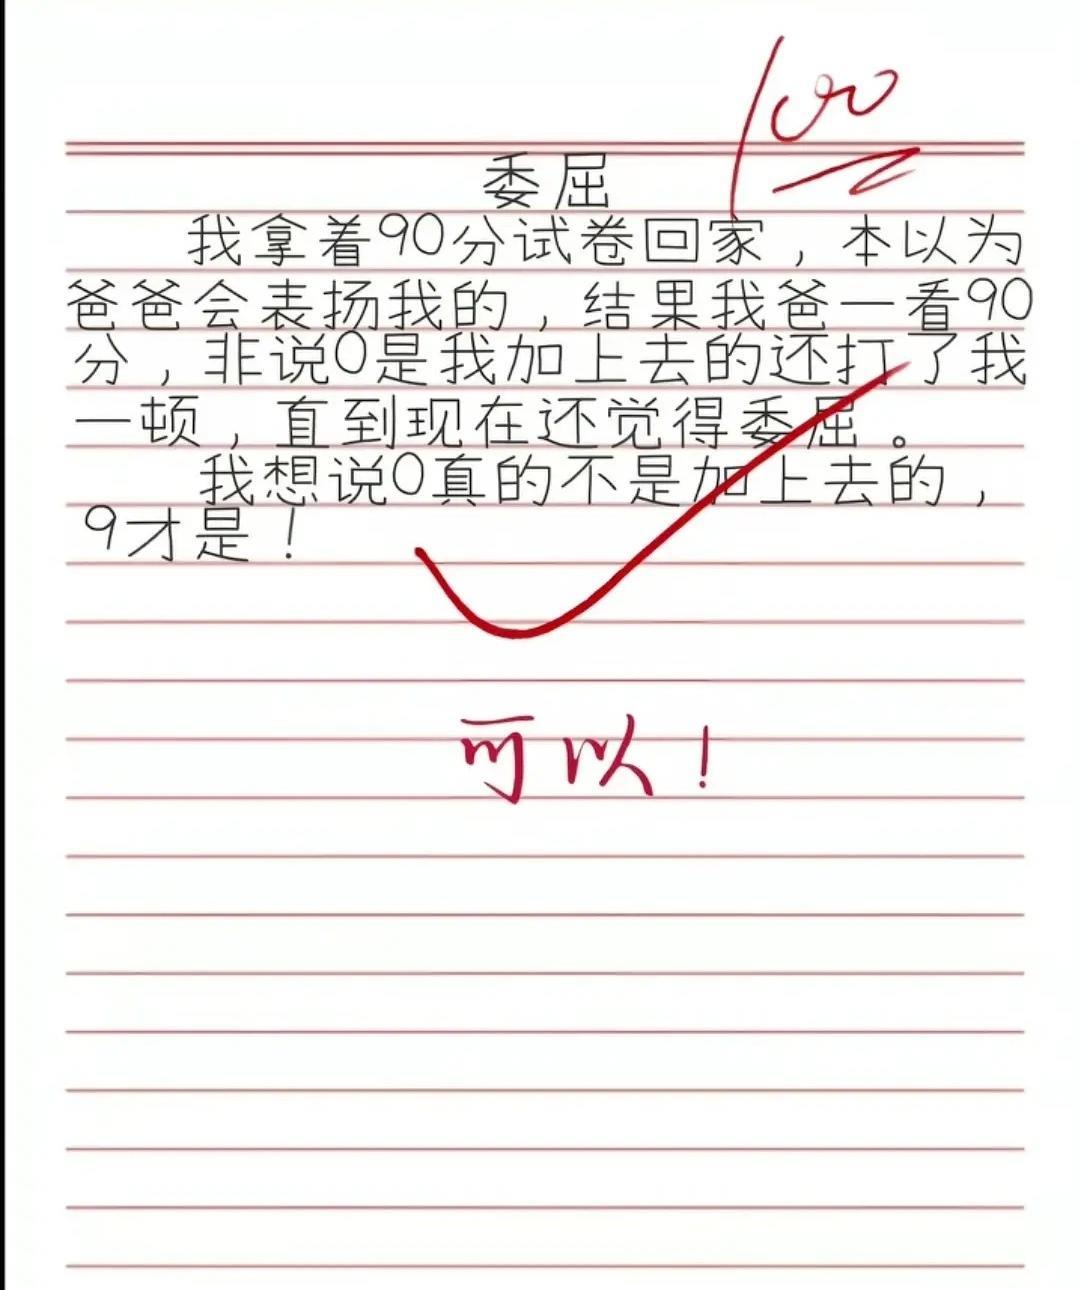 100
委屈
我拿着90分试卷回家，本以为
爸爸会表扬我的，结果我爸一看90
分，非说0是我加上去的还打了我
一顿，直到现在还觉得委屈。
我想说0真的不是加上去的，
9才是！
可以！